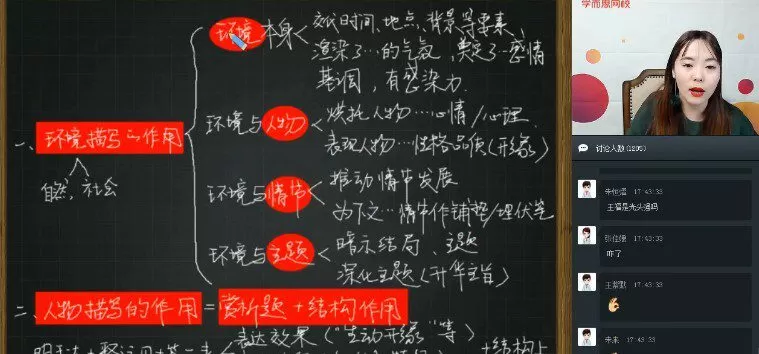 学而思网校
环境本身
交代时间、地点、背景等要素、
渲染了…的气氛,奠定了…感情
基调,有感染力.
一、环境描写的作用
自然,社会
环境与人物
烘托人物…心情/心理.
表现人物…性格品质(形象)
环境与情节
推动情节发展
为下文…情节作铺垫/埋伏笔
环境与主题
暗示结局、主题
深化主题(升华主旨)
二、人物描写的作用=赏析题+结构作用
表达效果("生动形象"等)
+结构上
讨论人数(1205)
17:43:33
王福是光头强吗
17:43:33
咋了
王紫默 17:43:33
朱来 17:43:33